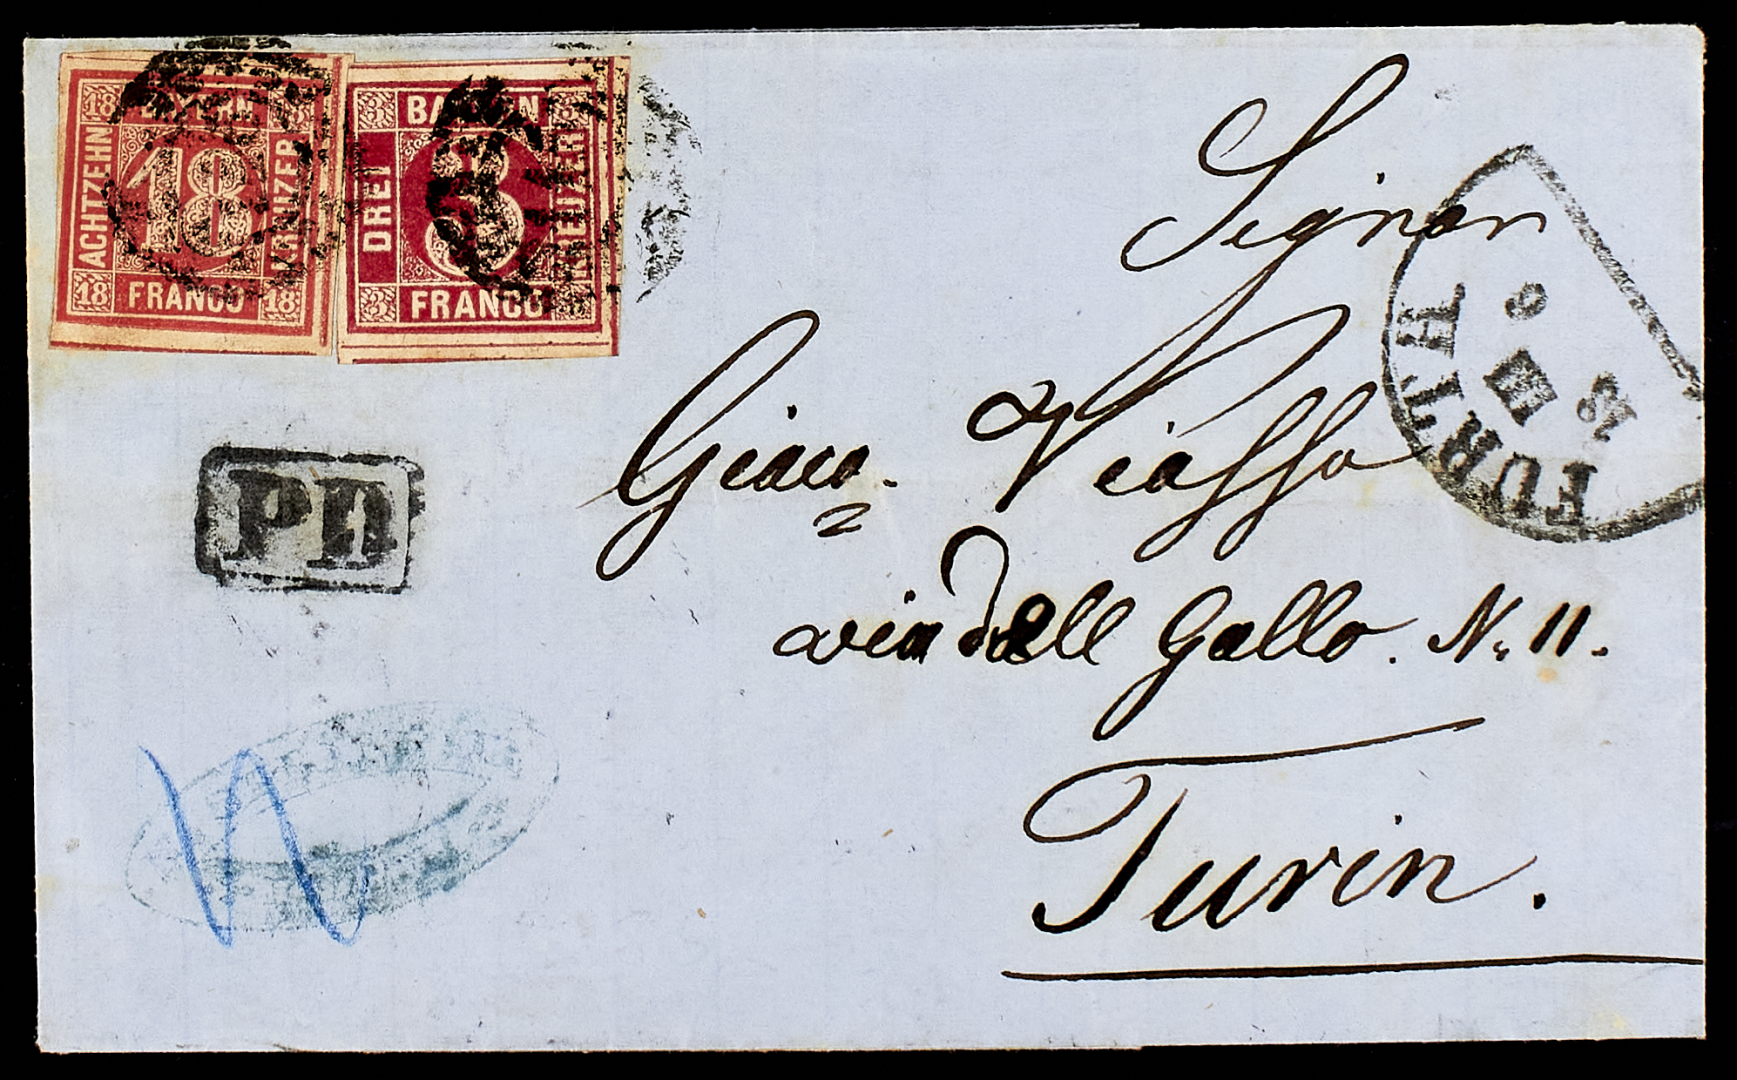 18 BAYERN
ACHTZEHN
18
KREUZER
18 FRANCO 18
3 BAYERN 3
DREI
3
KREUZER
3 FRANCO
PD
FÜRTH
Signor
Giaco. Viasso
via dell Gallo. N. 11.
Turin.